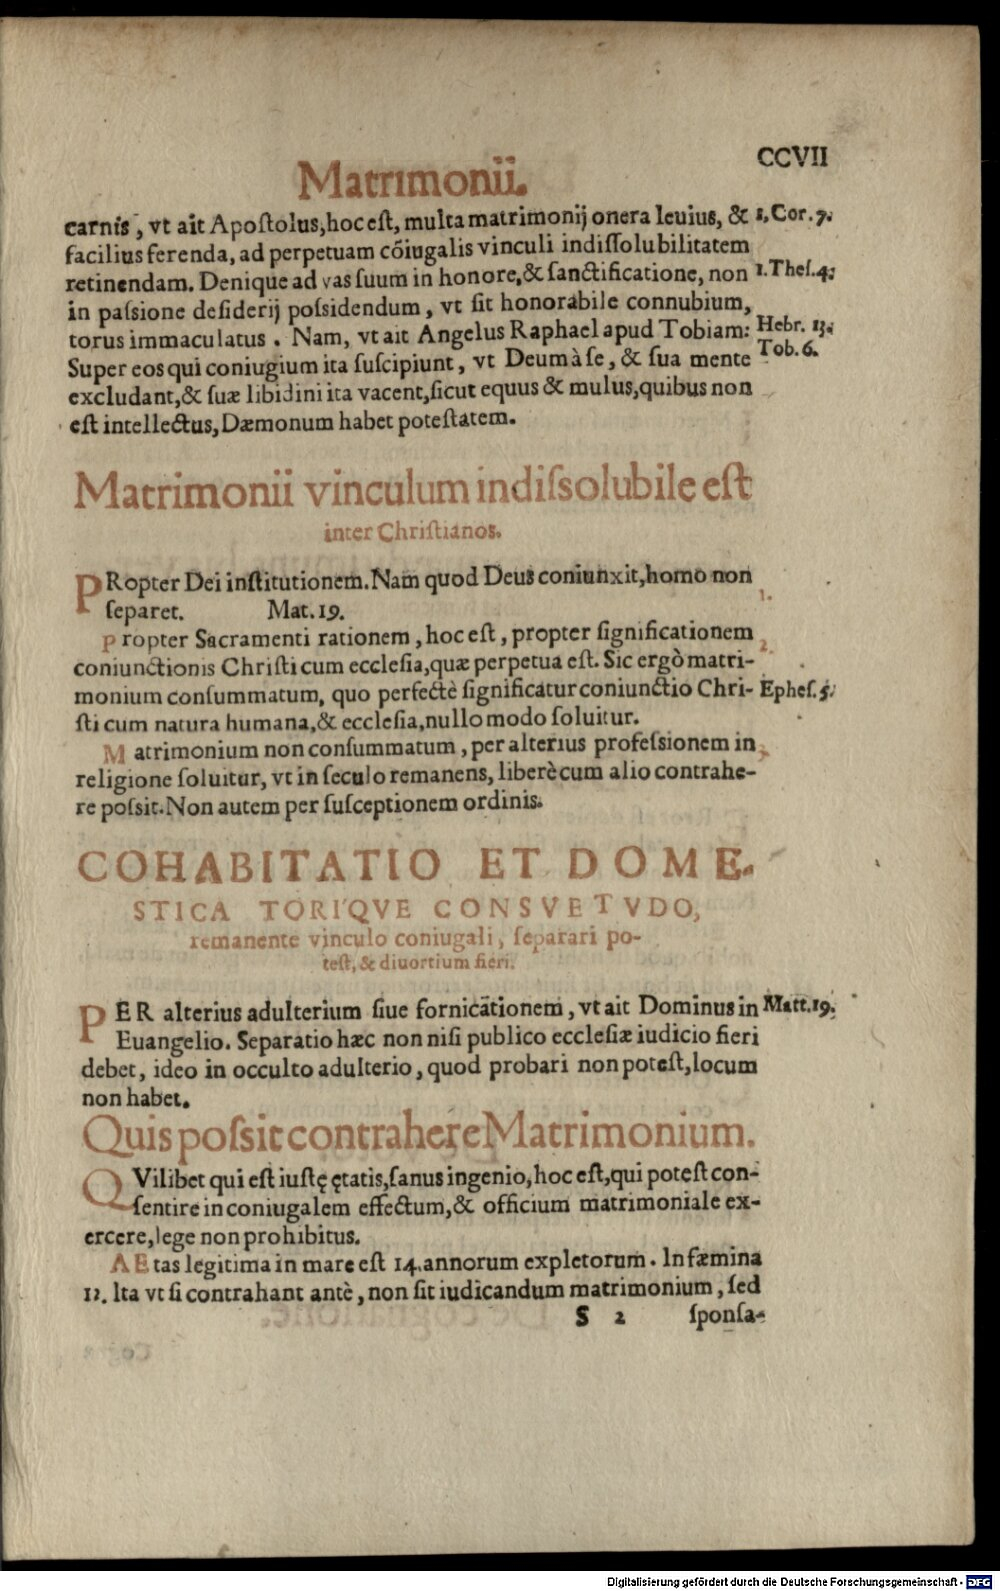 CCVII
Matrimonii.
carnis, vt ait Apoſtolus, hoc eſt, multa matrimonij onera leuius, & 1. Cor. 7.
facilius ferenda, ad perpetuam cõiugalis vinculi indiſſolubilitatem
retinendam. Denique ad vas ſuum in honore, & ſanctificatione, non 1. Theſ. 4.
in paſsione deſiderij poſsidendum, vt ſit honorabile connubium,
torus immaculatus. Nam, vt ait Angelus Raphael apud Tobiam: Hebr. 13.
Super eos qui coniugium ita ſuſcipiunt, vt Deum à ſe, & ſua mente Tob. 6.
excludant, & ſuæ libidini ita vacent, ſicut equus & mulus, quibus non
eſt intellectus, Dæmonum habet poteſtatem.
Matrimonii vinculum indiſsolubile eſt
inter Chriſtianos.
PRopter Dei inſtitutionem. Nam quod Deus coniunxit, homo non
ſeparet. Mat. 19. 1.
Propter Sacramenti rationem, hoc eſt, propter ſignificationem 2.
coniunctionis Chriſti cum eccleſia, quæ perpetua eſt. Sic ergò matri-
monium conſummatum, quo perfectè ſignificatur coniunctio Chri- Epheſ. 5.
ſti cum natura humana, & eccleſia, nullo modo ſoluitur.
Matrimonium non conſummatum, per alterius profeſsionem in 3.
religione ſoluitur, vt in ſeculo remanens, liberè cum alio contrahe-
re poſsit. Non autem per ſuſceptionem ordinis.
COHABITATIO ET DOME-
STICA TORI'QVE CONSVETVDO,
remanente vinculo coniugali, ſeparari po-
teſt, & diuortium fieri.
PER alterius adulterium ſiue fornicãtionem, vt ait Dominus in Matt. 19.
Euangelio. Separatio hæc non niſi publico eccleſiæ iudicio fieri
debet, ideo in occulto adulterio, quod probari non poteſt, locum
non habet.
Quis poſsit contrahere Matrimonium.
QVilibet qui eſt iuſtę ętatis, ſanus ingenio, hoc eſt, qui poteſt con-
ſentire in coniugalem effectum, & officium matrimoniale ex-
ercere, lege non prohibitus.
AEtas legitima in mare eſt 14. annorum expletorum. In fæmina
12. Ita vt ſi contrahant antè, non ſit iudicandum matrimonium, ſed
S 2 ſponſa-
Digitalisierung gefördert durch die Deutsche Forschungsgemeinschaft - DFG